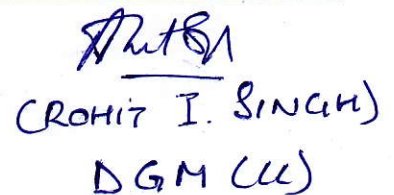 (ROHIT I. SINGH)
DGM (LL)